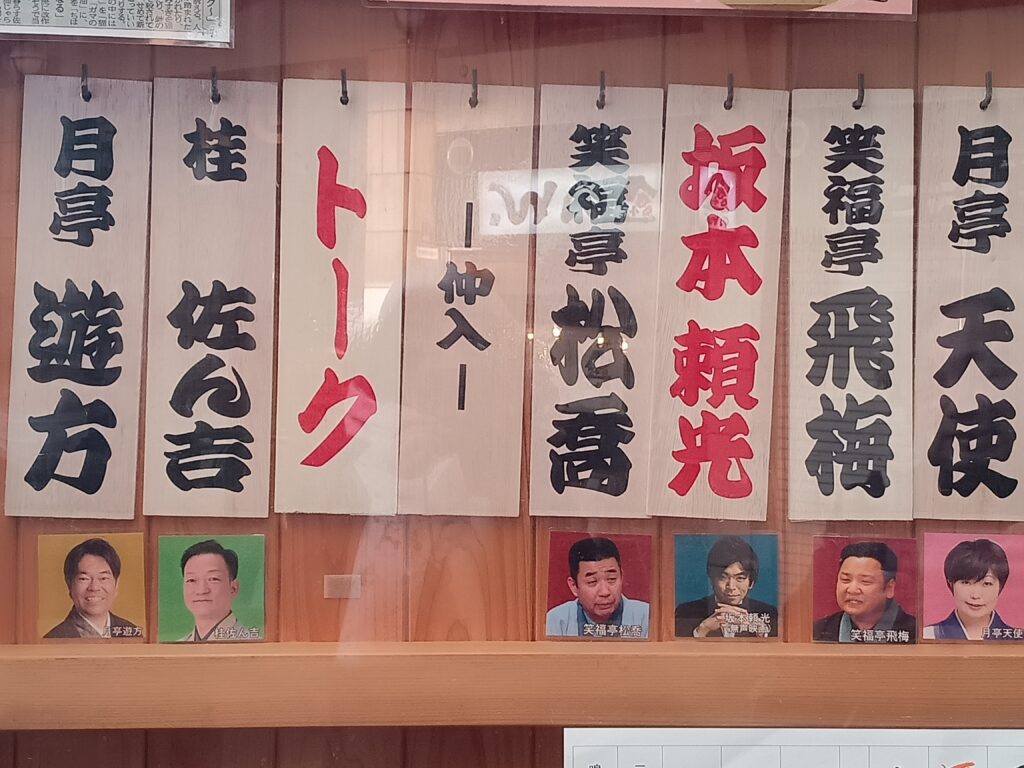 月亭 天使
笑福亭 飛梅
坂本 頼光
笑福亭 松喬
ー仲入ー
トーク
桂 佐ん吉
月亭 遊方
月亭遊方
桂佐ん吉
笑福亭松喬
坂本頼光
笑福亭飛梅
月亭天使